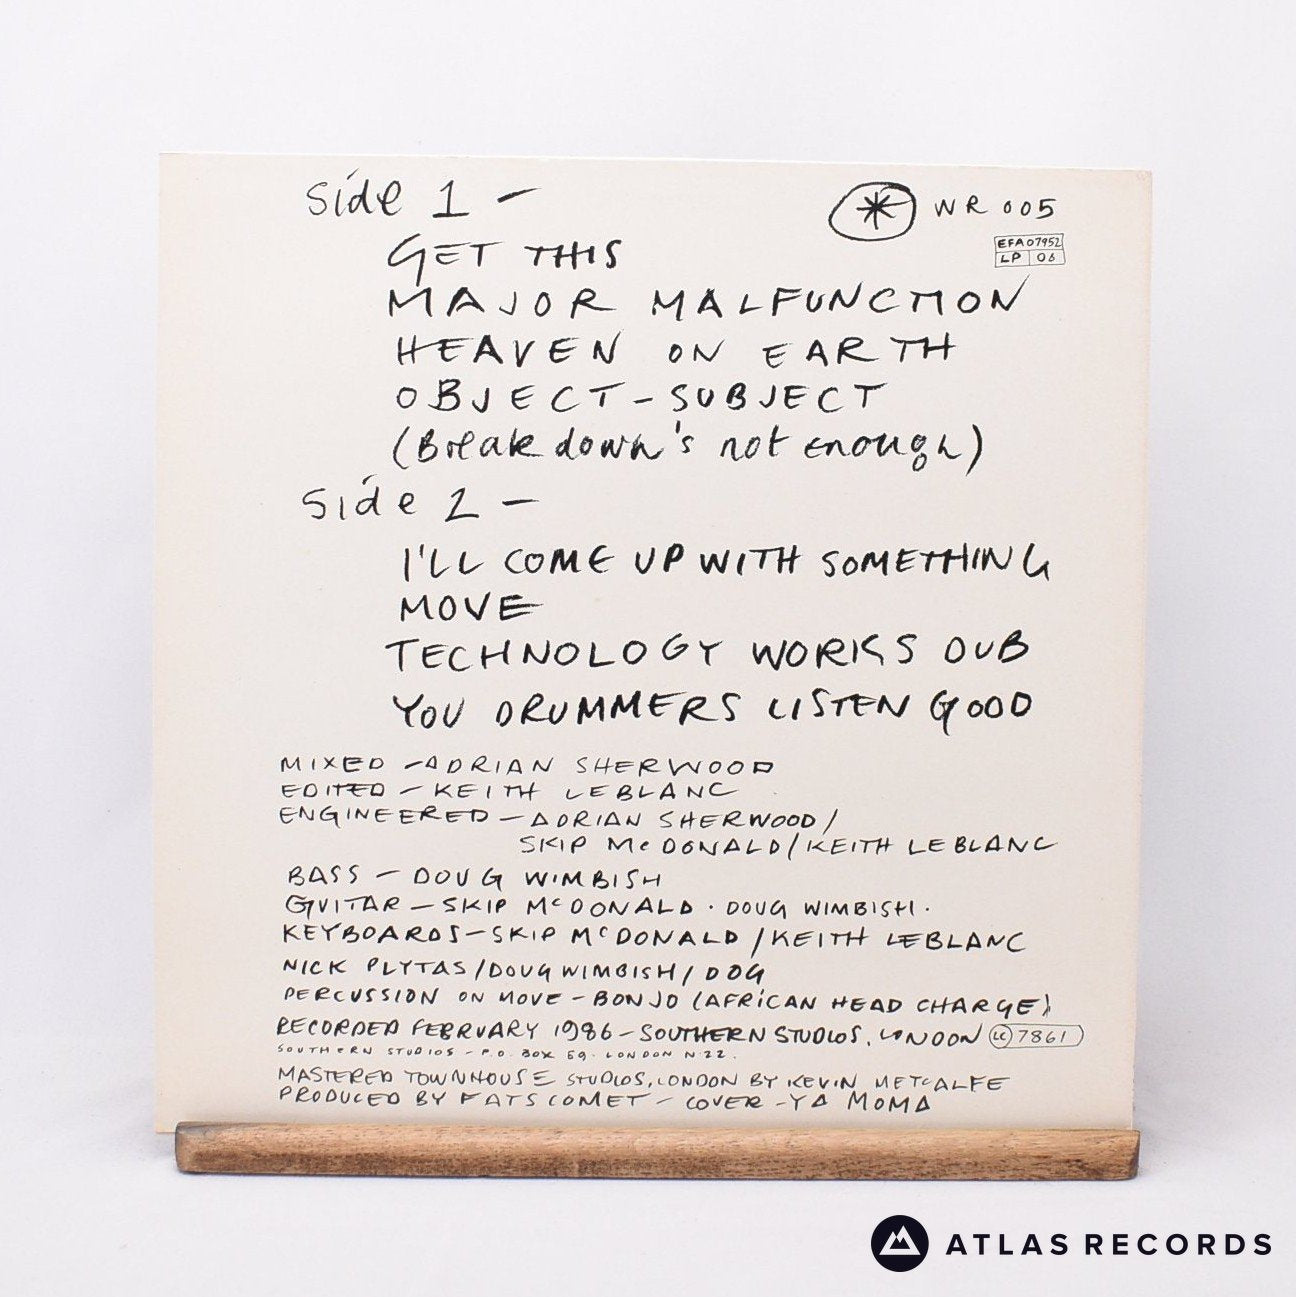 Side 1 –
WR 005
EFA 07952
LP 06
GET THIS
MAJOR MALFUNCTION
HEAVEN ON EARTH
OBJECT – SUBJECT
(Break down's not enough)
Side 2 –
I'LL COME UP WITH SOMETHING
MOVE
TECHNOLOGY WORKS DUB
YOU DRUMMERS LISTEN GOOD
MIXED – ADRIAN SHERWOOD
EDITED – KEITH LEBLANC
ENGINEERED – ADRIAN SHERWOOD/
SKIP McDONALD/KEITH LEBLANC
BASS – DOUG WIMBISH
GUITAR – SKIP McDONALD · DOUG WIMBISH ·
KEYBOARDS – SKIP McDONALD / KEITH LEBLANC
NICK PLYTAS/DOUG WIMBISH/DOG
PERCUSSION ON MOVE – BONJO (AFRICAN HEAD CHARGE)
RECORDED FEBRUARY 1986 – SOUTHERN STUDIOS, LONDON LC 7861
SOUTHERN STUDIOS – P.O. BOX 59. LONDON N.22.
MASTERED TOWNHOUSE STUDIOS, LONDON BY KEVIN METCALFE
PRODUCED BY FATS COMET – COVER – YA MOMA
ATLAS RECORDS